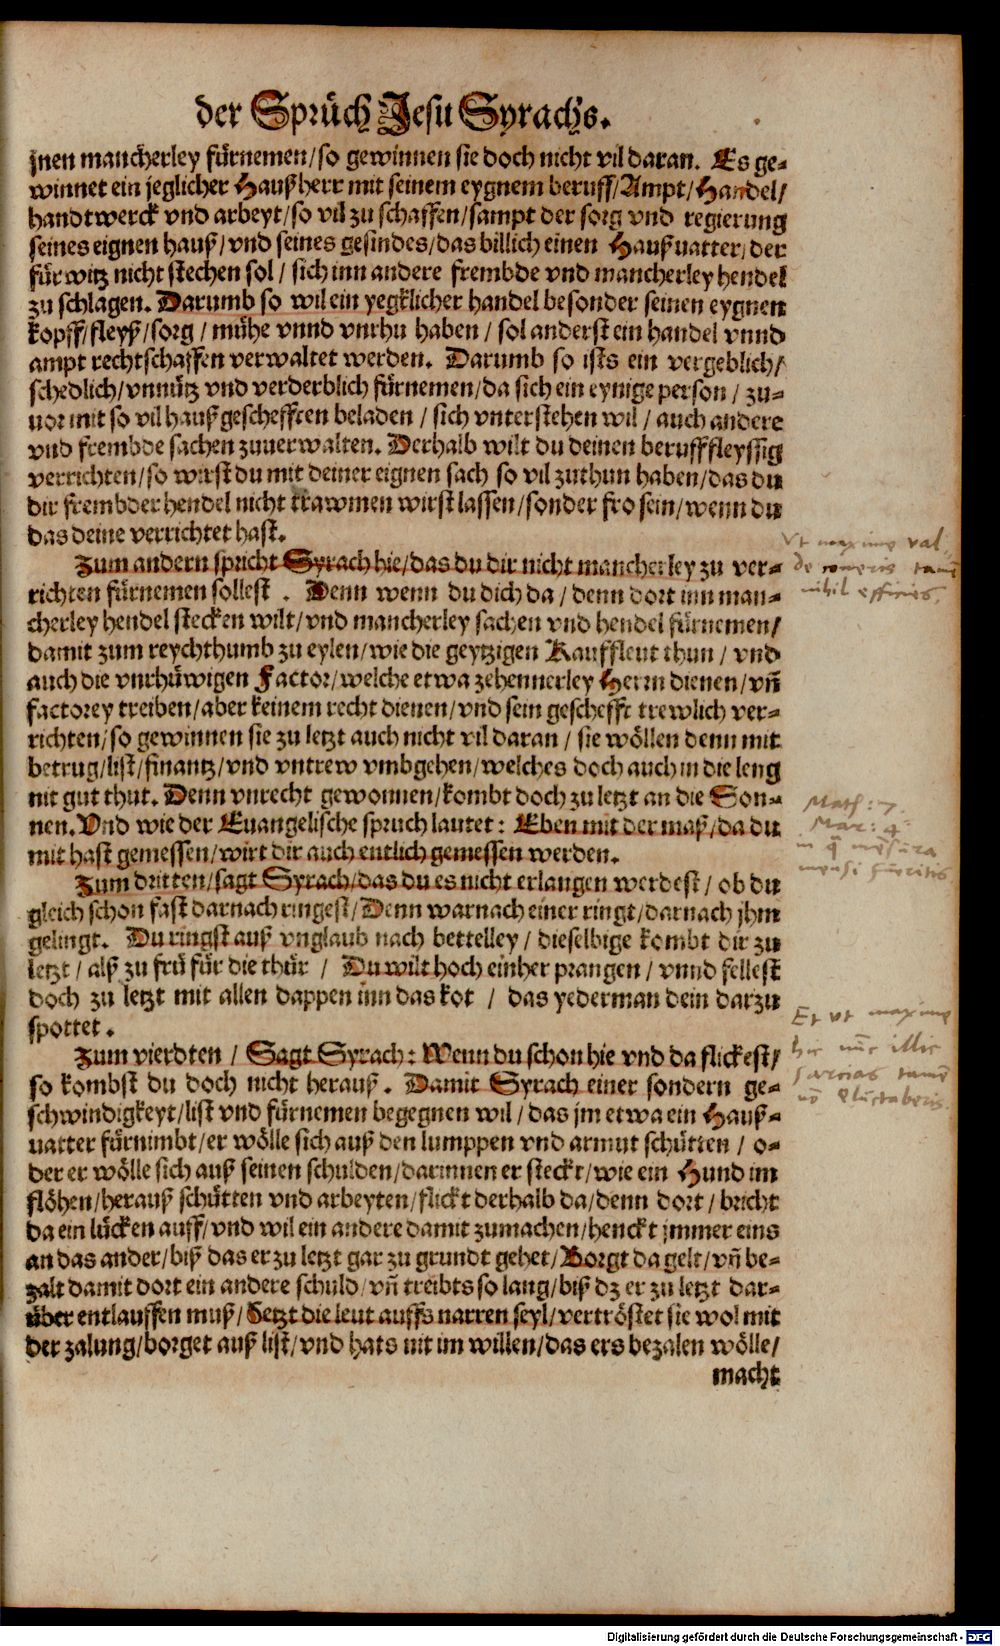 der Sprüch Jesu Syrachs.
jnen mancherley fürnemen/so gewinnen sie doch nicht vil daran. Es ge-
winnet ein jeglicher Haußherr mit seinem eygnem beruff/Ampt/Handel/
handtwerck vnd arbeyt/so vil zu schaffen/sampt der sorg vnd regierung
seines eignen hauß/vnd seines gesindes/das billich einen Haußuatter/der
fürwitz nicht stechen sol/sich inn andere frembde vnd mancherley hendel
zu schlagen. Darumb so wil ein yegklicher handel besonder seinen eygnen
kopff/fleyß/sorg/mühe vnnd vnrhu haben/sol anderst ein handel vnnd
ampt rechtschaffen verwaltet werden. Darumb so ists ein vergeblich/
schedlich/vnnütz vnd verderblich fürnemen/da sich ein eynige person/zu-
uor mit so vil haußgeschefften beladen/sich vnterstehen wil/auch andere
vnd frembde sachen zuuerwalten. Derhalb wilt du deinen beruff fleyssig
verrichten/so wirst du mit deiner eignen sach so vil zuthun haben/das du
dir frembder hendel nicht trawmen wirst lassen/sonder fro sein/wenn du
das deine verrichtet hast.
Zum andern spricht Syrach hie/das du dir nicht mancherley zu ver-
richten fürnemen sollest. Denn wenn du dich da/denn dort inn man-
cherley hendel stecken wilt/vnd mancherley sachen vnd hendel fürnemen/
damit zum reychthumb zu eylen/wie die geytzigen Kauffleut thun/vnd
auch die vnrhüwigen Factor/welche etwa zehennerley Herrn dienen/vñ
factorey treiben/aber keinem recht dienen/vnd sein geschefft trewlich ver-
richten/so gewinnen sie zu letzt auch nicht vil daran/sie wöllen denn mit
betrug/list/finantz/vnd vntrew vmbgehen/welches doch auch in die leng
nit gut thut. Denn vnrecht gewonnen/kombt doch zu letzt an die Son-
nen. Vnd wie der Euangelische spruch lautet: Eben mit der maß/da du
mit hast gemessen/wirt dir auch entlich gemessen werden.
Zum dritten/sagt Syrach/das du es nicht erlangen werdest/ob du
gleich schon fast darnach ringest/Denn warnach einer ringt/darnach jhm
gelingt. Du ringst auß vnglaub nach bettelley/dieselbige kombt dir zu
letzt/alß zu frü für die thür/Du wilt hoch einher prangen/vnnd fellest
doch zu letzt mit allen dappen inn das kot/das yederman dein darzu
spottet.
Zum vierdten/Sagt Syrach: Wenn du schon hie vnd da flickest/
so kombst du doch nicht herauß. Damit Syrach einer sondern ge-
schwindigkeyt/list vnd fürnemen begegnen wil/das jm etwa ein Hauß-
uatter fürnimbt/er wölle sich auß den lumppen vnd armut schütten/o-
der er wölle sich auß seinen schulden/darinnen er steckt/wie ein Hund im
flöhen/herauß schütten vnd arbeyten/flickt derhalb da/denn dort/bricht
da ein lücken auff/vnd wil ein andere damit zumachen/henckt jmmer eins
an das ander/biß das er zu letzt gar zu grundt gehet/Borgt da gelt/vñ be-
zalt damit dort ein andere schuld/vñ treibts so lang/biß dz er zu letzt dar-
über entlauffen muß/Setzt die leut auffs narren seyl/vertröstet sie wol mit
der zalung/borget auß list/vnd hats nit im willen/das ers bezalen wölle/
macht
Vt maxime val-
de coneris tamē
nihil efficies.
Math: 7.
Mar: 4
in q̄ mēsura
mensi fueritis
Et vt maxime
hic illic
sarcias tamē
nō eluctaberis.
Digitalisierung gefördert durch die Deutsche Forschungsgemeinschaft - DFG